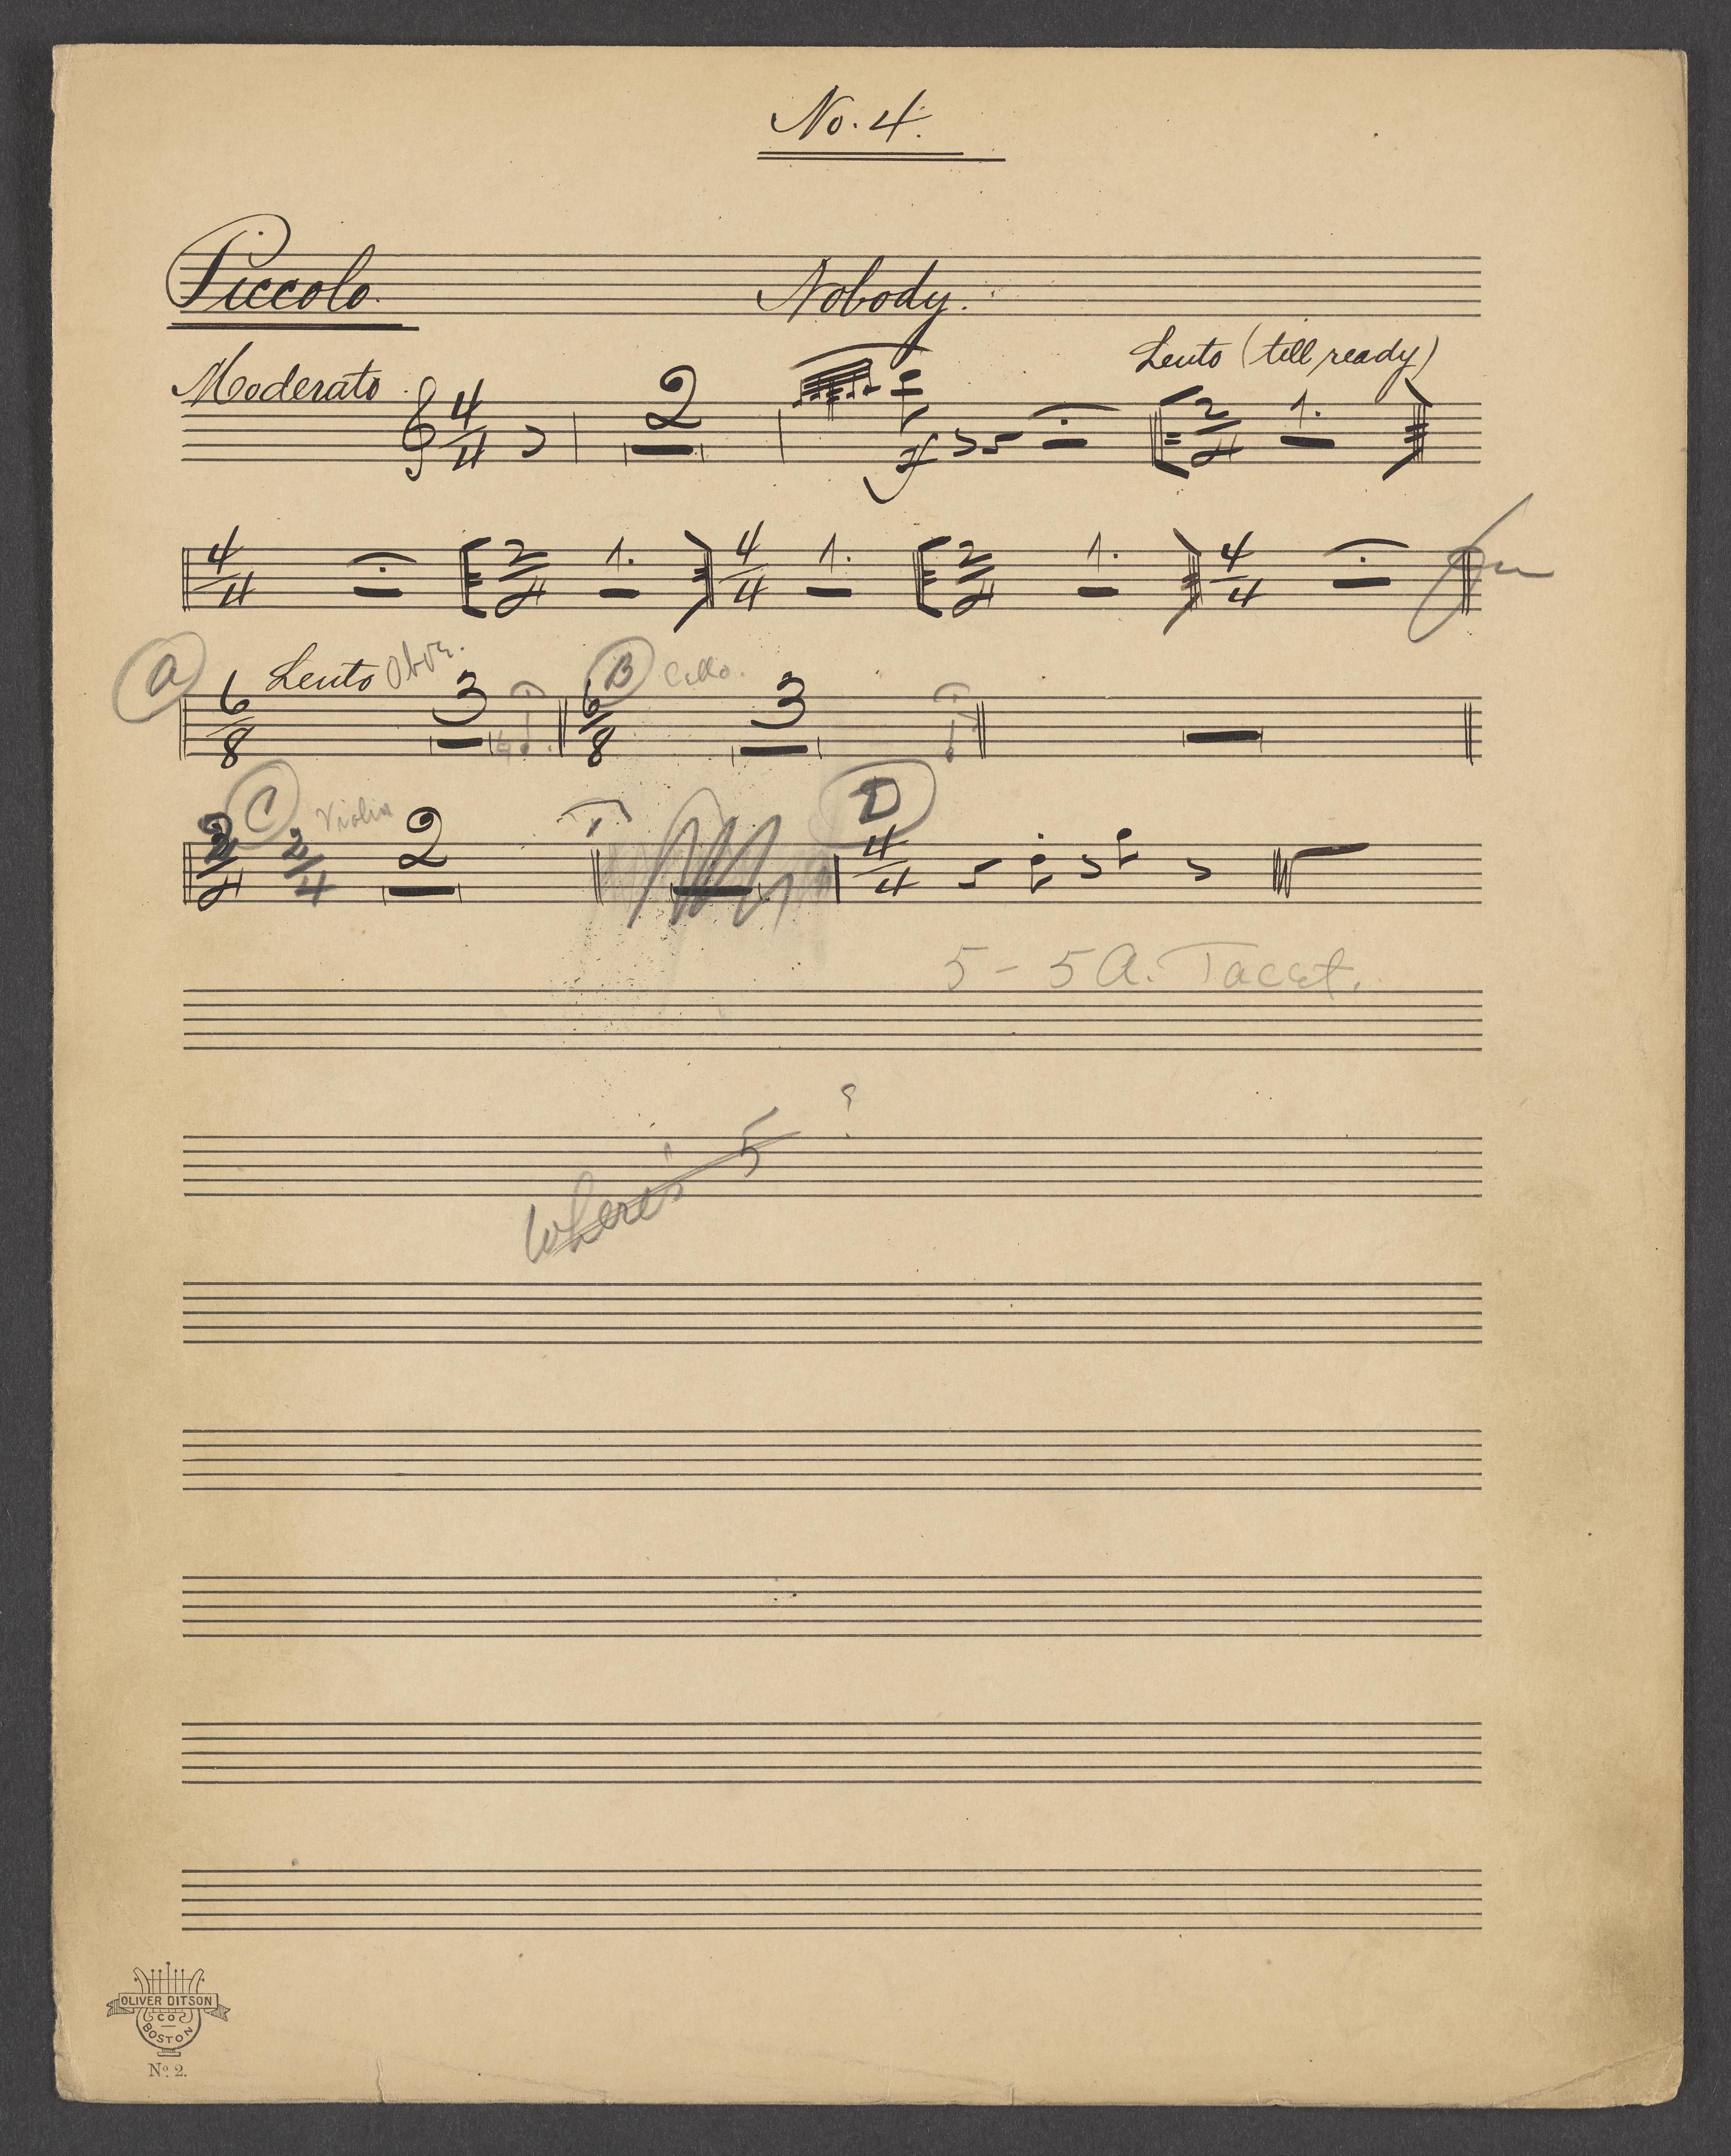 No. 4.
Piccolo. Nobody.
Moderato Lento (till ready)
4/4 2 2/4 1.
4/4 2/4 1. 4/4 1. 2/4 1. 4/4
A Lento Oboe. B Cello.
6/8 3 6/8 3
C Violin D
2/4 2/4 2 4/4
5 - 5A. Tacet.
Where's 5 ?
OLIVER DITSON
CO
BOSTON
No. 2.